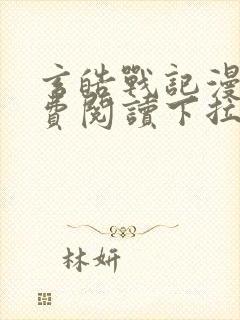 言皓戰記漫
費閱讀下拉
林妍